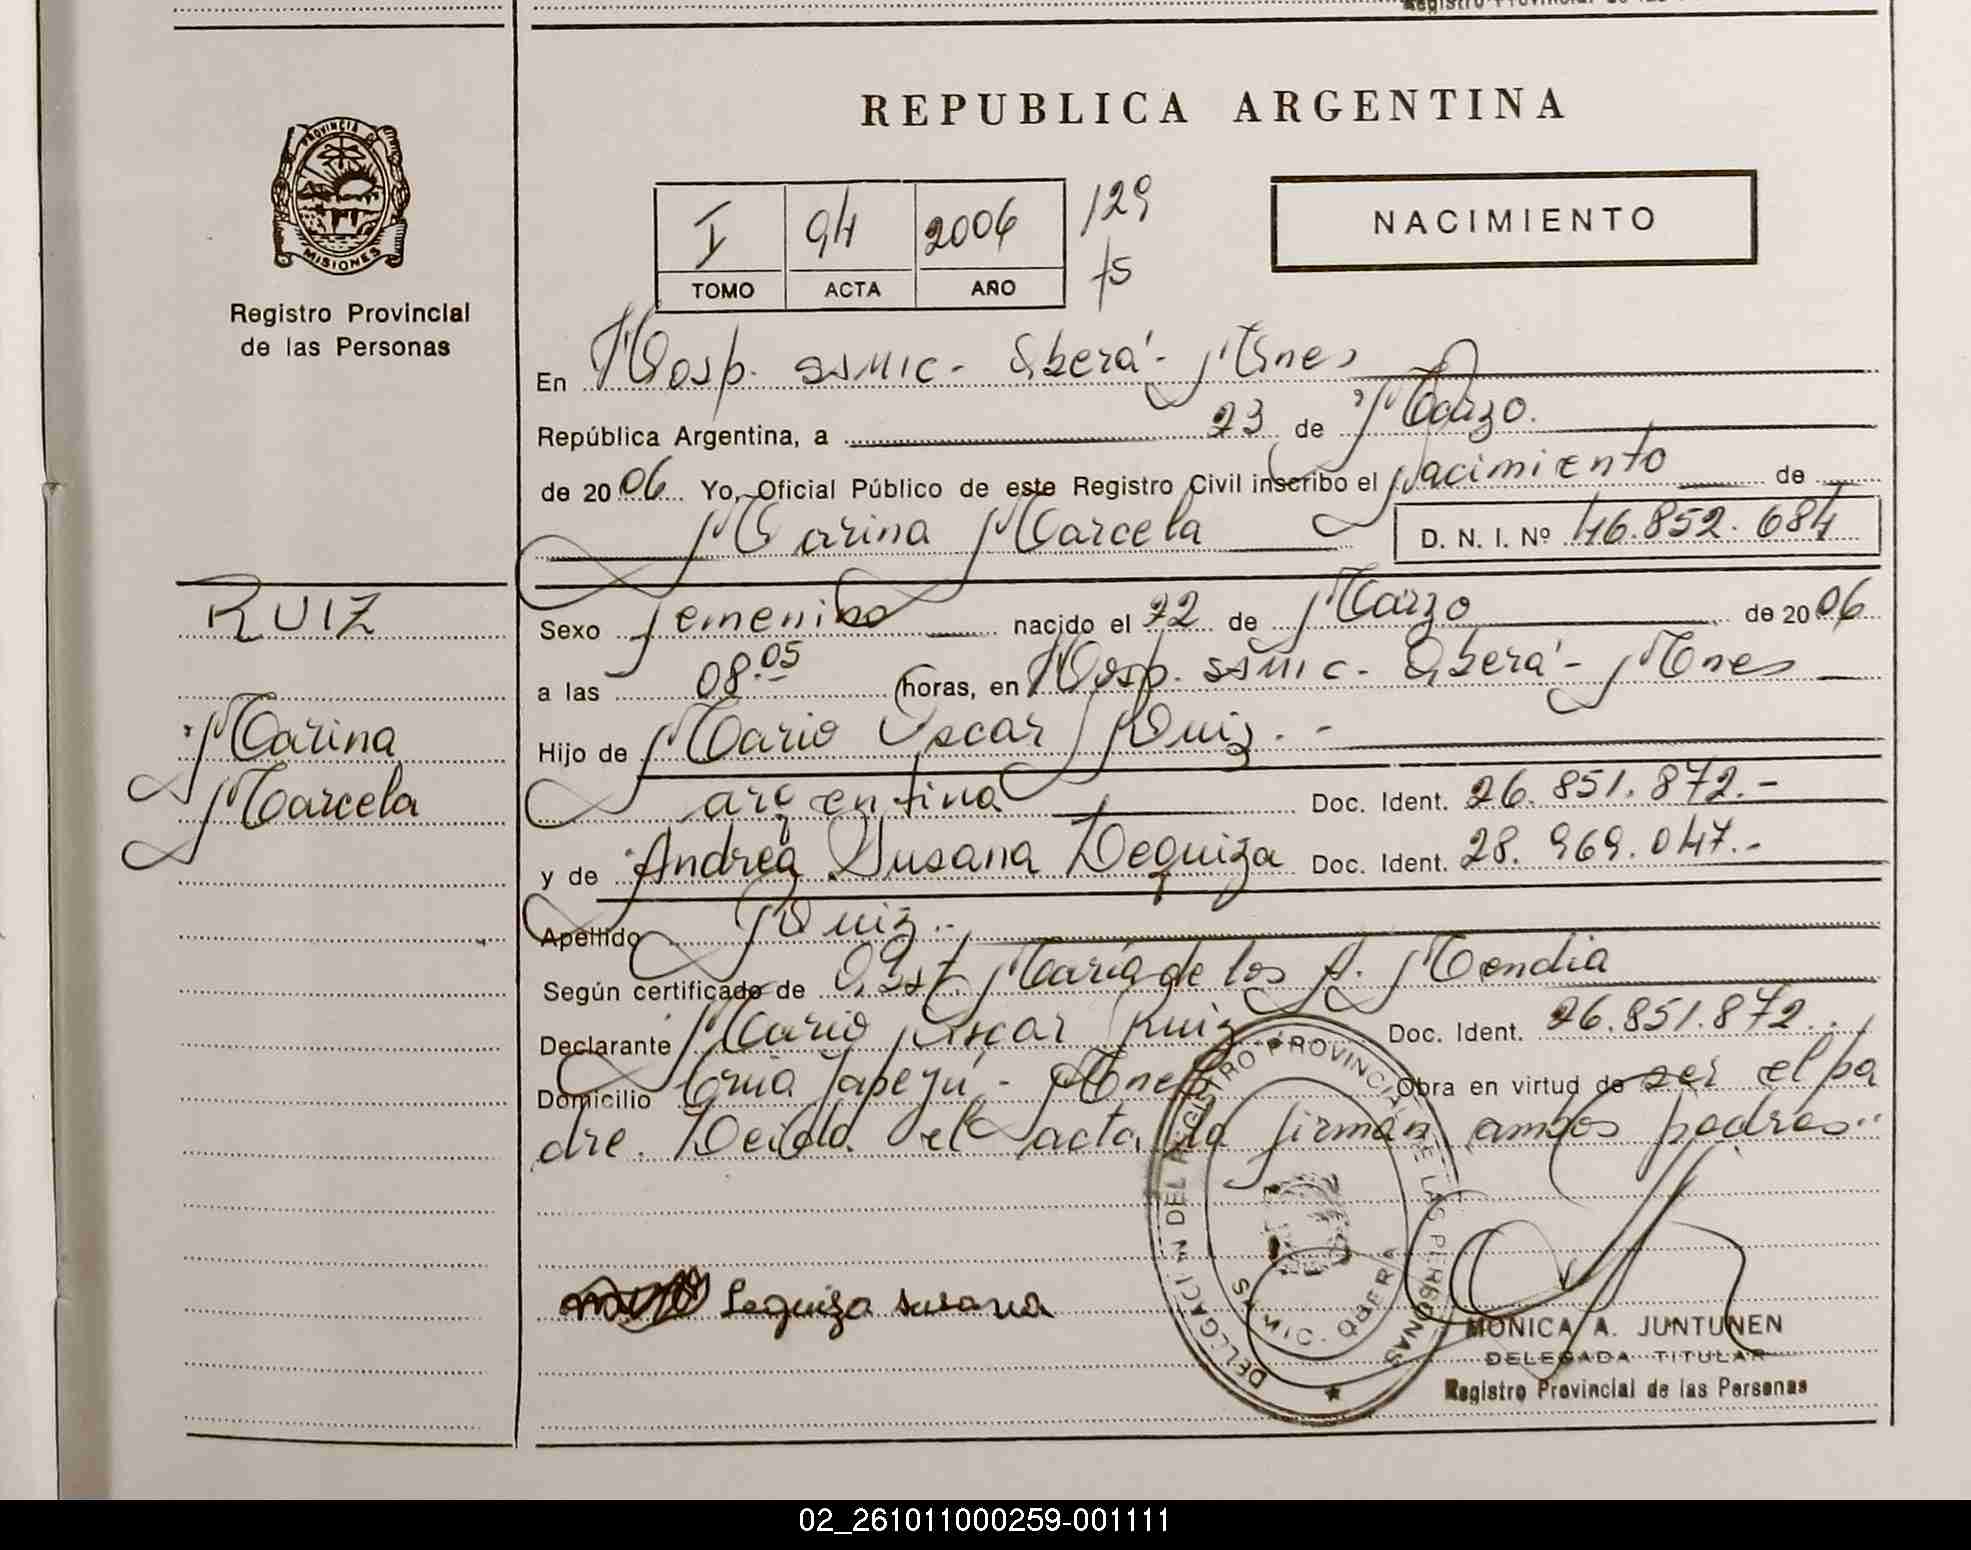 REPUBLICA ARGENTINA
PROVINCIA DE
MISIONES
Registro Provincial
de las Personas
I 94 2006 129
TOMO ACTA AÑO 75
NACIMIENTO
En Hosp. SSMIC - Oberá - Mnes
República Argentina, a 23 de Marzo.
de 2006 Yo, Oficial Público de este Registro Civil inscribo el Nacimiento de
Marina Marcela D. N. I. Nº 46.852.684
RUIZ
Marina
Marcela
Sexo femenino nacido el 22 de Marzo de 2006
a las 08.05 horas, en Hosp. SSMIC - Oberá - Mnes
Hijo de Mario Oscar Ruiz. -
argentina Doc. Ident. 26.851.872.-
y de Andrea Susana Leguiza Doc. Ident. 28.969.047.-
Apellido Ruiz.-
Según certificado de Obst. María de los A. Mendia
Declarante Mario Oscar Ruiz Doc. Ident. 26.851.872.
Domicilio Cnia Yapeyú - Mnes Obra en virtud de ser el pa
dre. Leida el acta, la firman ambos padres..
Leguiza susana
DELEGACION DEL REGISTRO PROVINCIAL DE LAS PERSONAS
OBERA
MONICA A. JUNTUNEN
DELEGADA TITULAR
Registro Provincial de las Personas
02_261011000259-001111